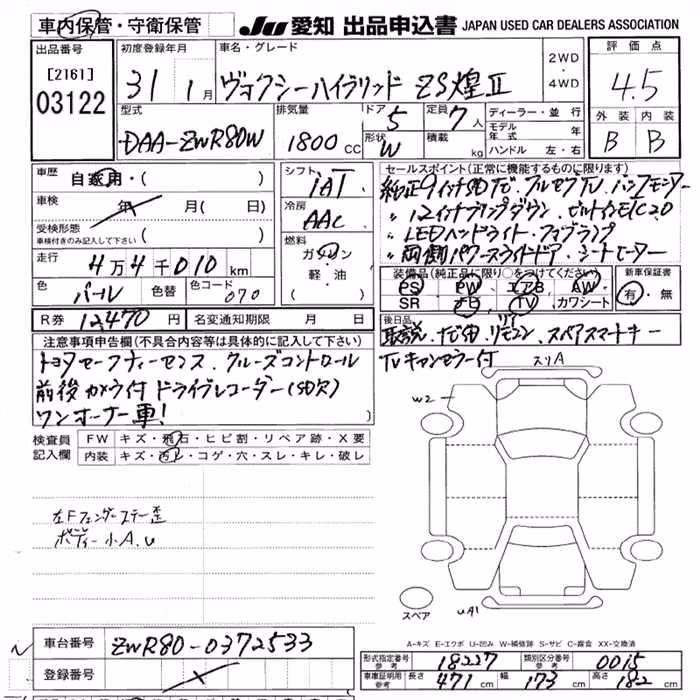 車内保管・守衛保管 JU 愛知 出品申込書 JAPAN USED CAR DEALERS ASSOCIATION
出品番号 初度登録年月 車名・グレード 評価点
[2161] 31 1月 ヴォクシーハイブリッド ZS煌Ⅱ 2WD・4WD 4.5
03122 外装 内装
型式 排気量 ドア 5 定員 7人 ディーラー・並行 B B
DAA-ZWR80W 1800CC 形状 W 積載 kg モデル年式 年
ハンドル 左・右
車歴 自家用・( ) シフト セールスポイント(正常に機能するものに限ります)
車検 年 月( 日) iAT 純正9インチSDナビ フルセグTV バックモニター
受検形態 冷房 〃 12インチフリップダウン ビルトインETC2.0
車検付きのみ記入して下さい ( ) AAC 〃 LEDヘッドライト フォグランプ
走行 燃料 〃 両側パワースライドドア シートヒーター
4万4千010km ガソリン 装備品(純正品に限り○をつけてください) 新車保証書
色 パール 色替 色コード 070 軽・油 PS PW エアB AW 有・無
( ) SR ナビ TV カワシート
R券 12,470円 名変通知期限 月 日 後日品
取説、ナビ・リモコン、スペアスマートキー
注意事項申告欄(不具合内容等は具体的に記入して下さい) TVキャンセラー付
トヨタセーフティーセンス、クルーズコントロール
前後カメラ付ドライブレコーダー(SD欠)
ワンオーナー車!
検査員記入欄 FW キズ・飛石・ヒビ割・リペア跡・X要
内装 キズ・汚レ・コゲ・穴・スレ・キレ・破レ
スリA
W2
左Fフェンダーステー歪
ボディー小A.U
スペア
UA1
A-キズ E-エクボ U-凹み W-補修跡 S-サビ C-腐食 XX-交換済
車台番号 ZWR80-0372533
登録番号
形式指定番号 参考 18227 類別区分番号 参考 0015
車庫証明用 参考 長さ 471cm 幅 173cm 高さ 182cm